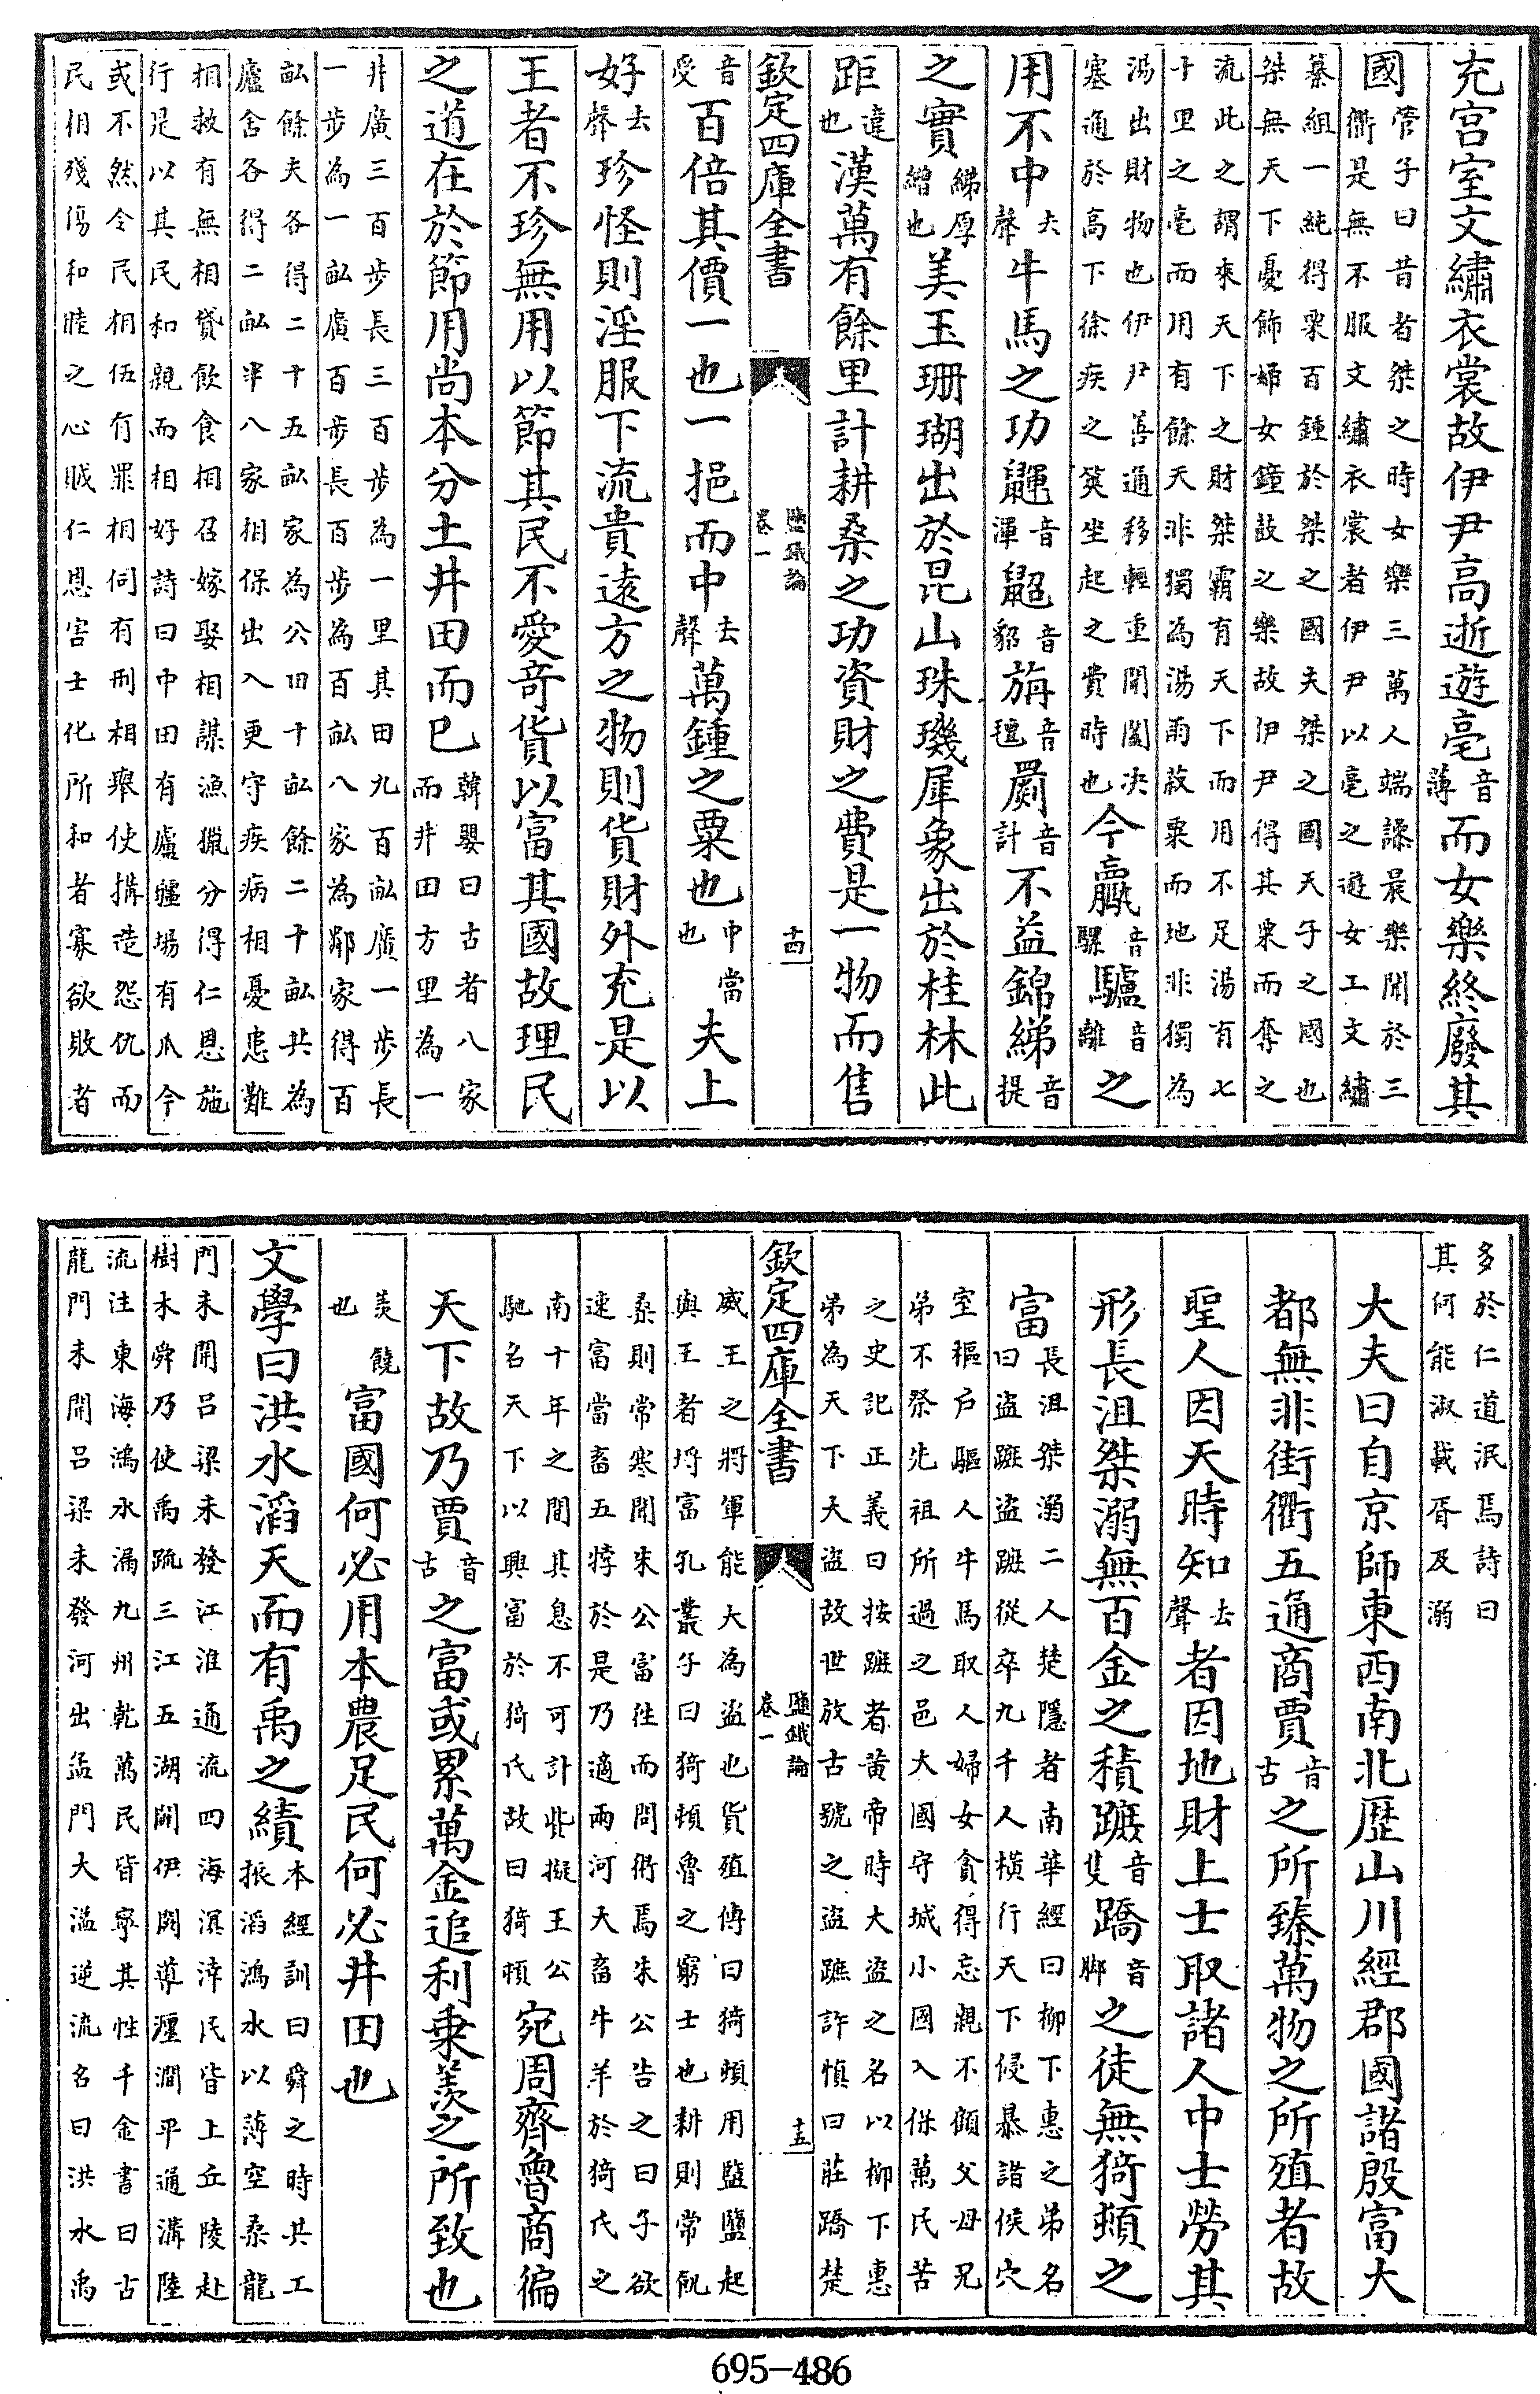 充宫室文繡衣裳故伊尹高逝遊亳音薄而女樂終廢其
國管子曰昔者桀之時女樂三萬人端譟晨樂聞於三衢是無不服文繡衣裳者伊尹以亳之遊女工文繡
纂組一純得粟百鍾於桀之國夫桀之國天子之國也桀無天下憂飾婦女鐘鼓之樂故伊尹得其粟而奪之
流此之謂來天下之財桀霸有天下而用不足湯有七十里之亳而用有餘天非獨為湯雨菽粟而地非獨為
湯出財物也伊尹善通移輕重開闔决塞通於高下徐疾之筴坐起之費時也今驘音騾驢音離之
用不中去聲牛馬之功鼲音渾鼦音貂旃音氊罽音計不益錦綈音提
之實綈厚繒也美玉珊瑚出於昆山珠璣犀象出於桂林此
距違也漢萬有餘里計耕桑之功資財之費是一物而售
欽定四庫全書 鹽鐵論卷一 十四
音受百倍其價一也一挹而中去聲萬鍾之粟也中當也夫上
好去聲珍怪則淫服下流貴遠方之物則貨財外充是以
王者不珍無用以節其民不愛奇貨以富其國故理民
之道在於節用尚本分土井田而已韓嬰曰古者八家而井田方里為一
井廣三百步長三百步為一里其田九百畝廣一步長一步為一畝廣百步長百步為百畝八家為鄰家得百
畝餘夫各得二十五畝家為公田十畝餘二十畝共為廬舍各得二畝半八家相保出入更守疾病相憂患難
相救有無相貸飲食相召嫁娶相謀漁獵分得仁恩施行是以其民和親而相好詩曰中田有廬疆場有瓜今
或不然令民相伍有罪相伺有刑相舉使搆造怨仇而民相殘傷和睦之心賊仁恩害士化所和者寡欲敗者
多於仁道泯焉詩曰其何能淑載胥及溺
大夫曰自京師東西南北歴山川經郡國諸殷富大
都無非街衢五通商賈音古之所臻萬物之所殖者故
聖人因天時知去聲者因地財上士取諸人中士勞其
形長沮桀溺無百金之積蹠音隻蹻音脚之徒無猗頓之
富長沮桀溺二人楚隱者南華經曰柳下惠之弟名曰盗蹠盗蹠從卒九千人横行天下侵暴諸侯穴
室樞户驅人牛馬取人婦女貪得忘親不顧父母兄弟不祭先祖所過之邑大國守城小國入保萬民苦
之史記正義曰按蹠者黄帝時大盗之名以柳下惠弟為天下大盗故世放古號之盗蹠許慎曰莊蹻楚
欽定四庫全書 鹽鐵論卷一 十五
威王之將軍能大為盗也貨殖傳曰猗頓用鹽鹽起與王者埒富孔叢子曰猗頓魯之窮士也耕則常飢
桑則常寒聞朱公富往而問術焉朱公告之曰子欲速富當畜五牸於是乃適西河大畜牛羊於猗氏之
南十年之間其息不可計貲擬王公馳名天下以興富於猗氏故曰猗頓宛周齊魯商徧
天下故乃賈音古之富或累萬金追利乗羡之所致也
羡饒也富國何必用本農足民何必井田也
文學曰洪水滔天而有禹之績本經訓曰舜之時共工振滔鴻水以薄空桑龍
門未開吕梁未發江淮通流四海溟涬民皆上丘陵赴樹木舜乃使禹疏三江五湖闢伊闕導瀍澗平通溝陸
流注東海鴻水漏九州乾萬民皆寧其性千金書曰古龍門未開吕梁未發河出孟門大溢逆流名曰洪水禹
695-486